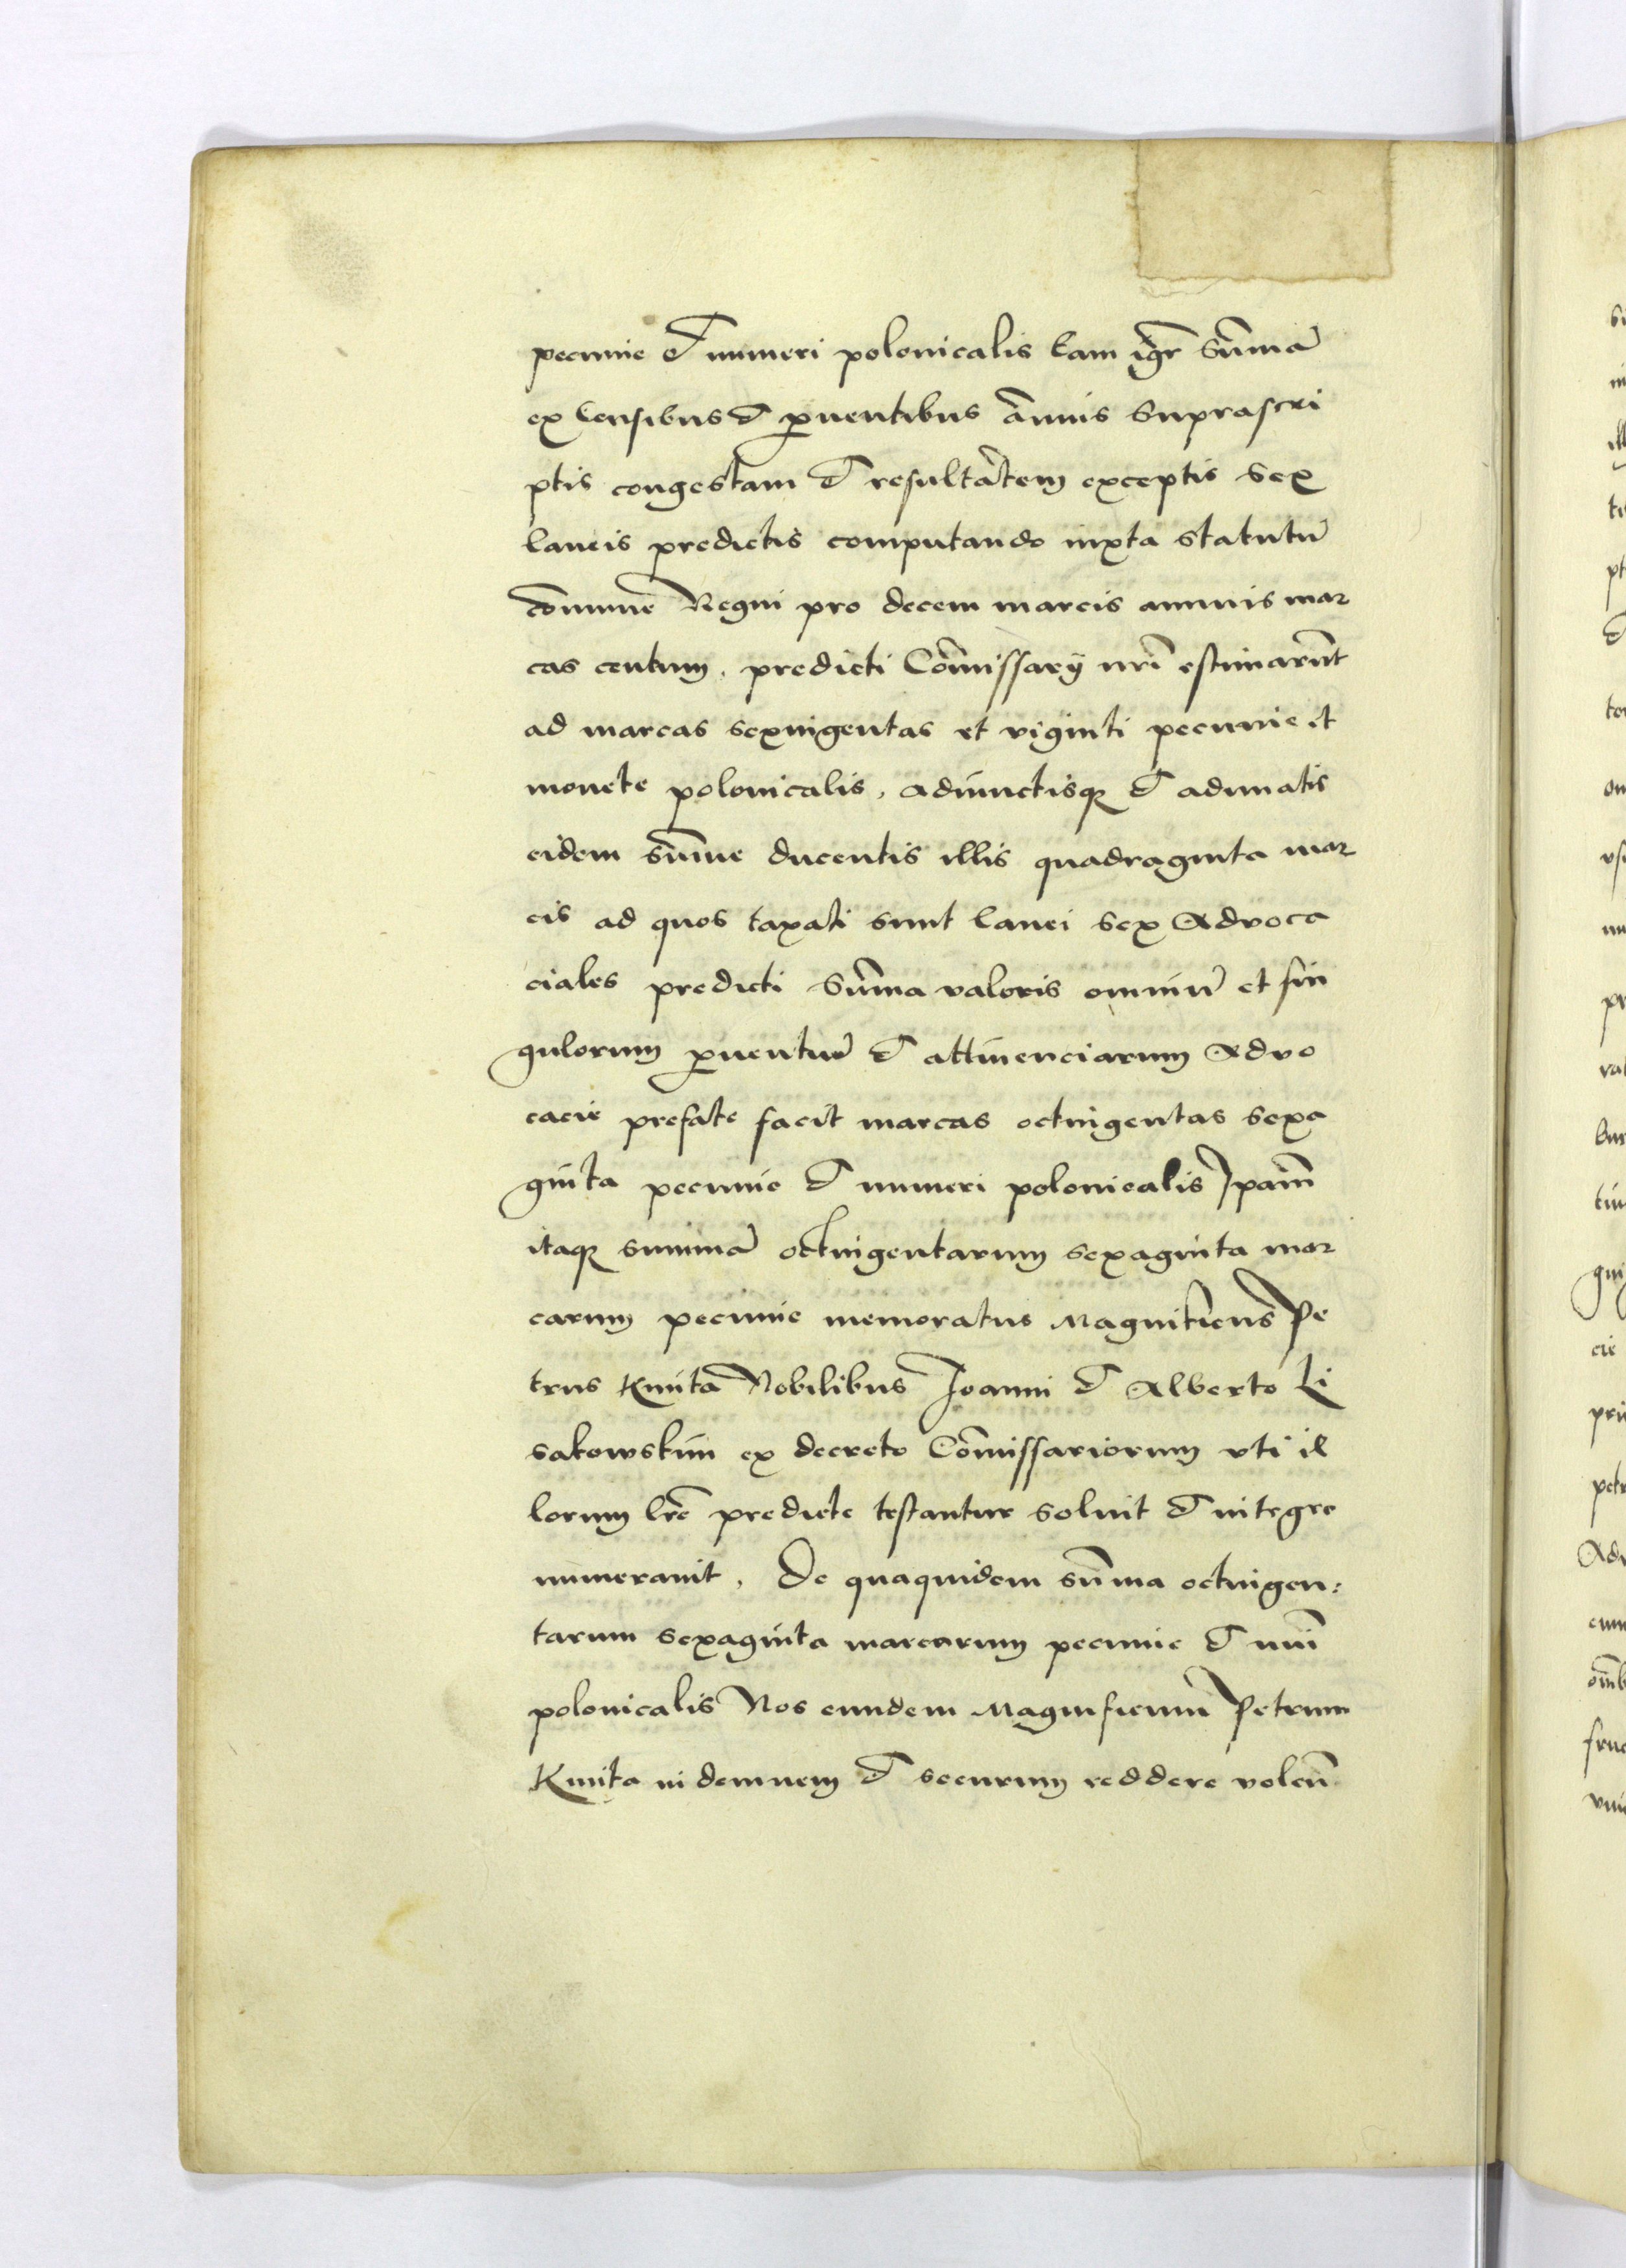 pecunie et numeri polonicalis Eam igr̃ Sum̃mã
ex Censibus et ꝓuentibus ãnnis Suprascri
ptis congestam et resultãtem exceptis Sex
laneis predictis computando iuxta Statutũ
cõmmune Regni pro decem marcis annuis mar
cas centum, predicti Cõmissarij nrĩ estimarũnt
ad marcas sexingentas et viginti pecunie et
monete polonicalis, adiunctisqꝫ et adunatis
eidem Sũmme ducentis illis quadraginta mar
cis ad quos taxati sunt lanei sex Advoca
ciales predicti Sũmma valoris omniũ et sin
gulorum ꝓuentuũ et attinenciarum Advo
cacie prefate facit marcas octingentas sexa
ginta pecunie et numeri polonicalis Ipsam̃
itaqꝫ summã octingentarum sexaginta mar
carum pecunie memoratus Magnificus Pe
trus Kmita Nobilibus Joanni et Alberto Li
sakowskim ex decreto Cõmissariorum vti il
lorum lrẽ predicte testantur soluit et integre
numerauit, De quaquidem sum̃ma octingen:
tarum sexaginta marcarum pecunie et nũi
polonicalis Nos eundem Magnificum Petrum
Kmita indemnem et securum reddere volen̄